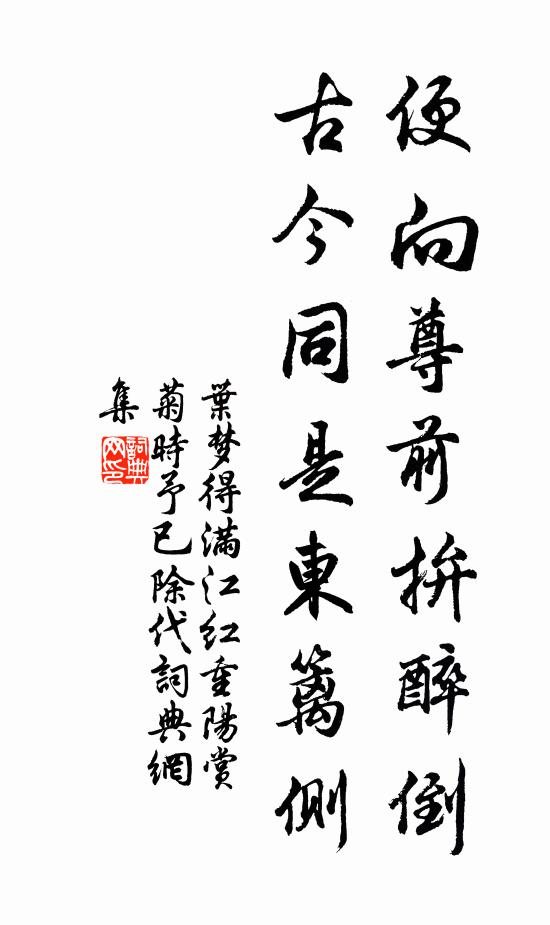 便向尊前拚醉倒
古今同是東籬側
葉梦得滿江紅重陽賞
菊時予已除代詞典網
集
詞典
网印